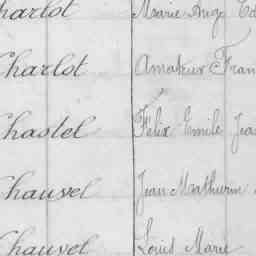 Charlot Marie Ange Ed
Charlot Amateur Fran
Chastel Félix Emile Jea
Chauvel Jean Mathurin
Chauvel Louis Marie